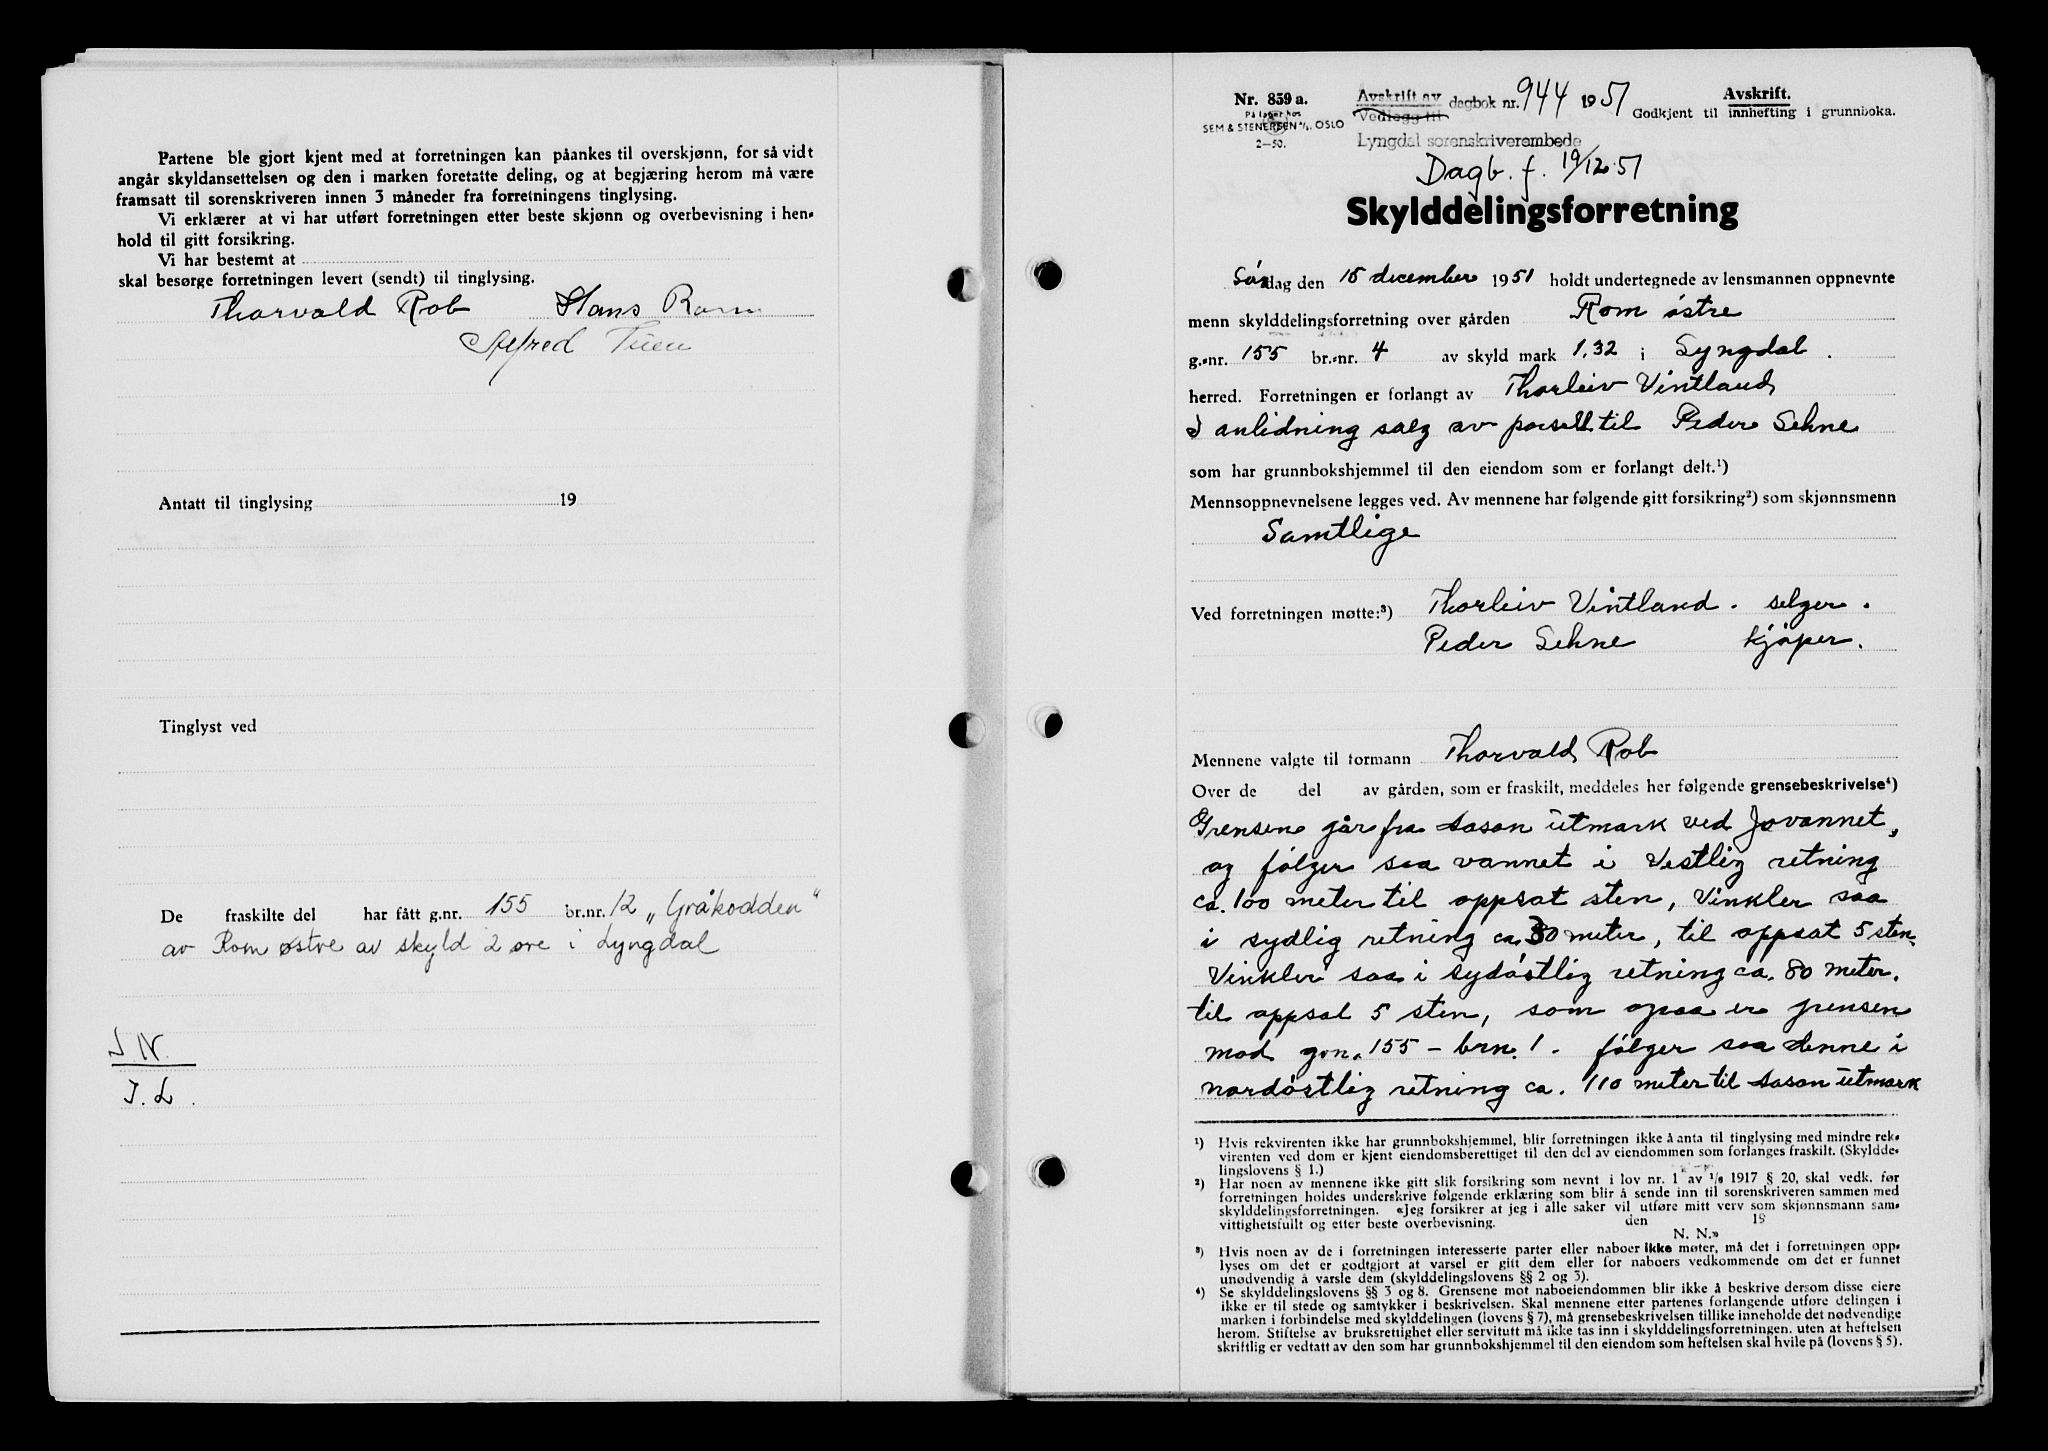 Partene ble gjort kjent med at forretningen kan påankes til overskjønn, for så vidt
angår skyldansettelsen og den i marken foretatte deling, og at begjæring herom må være
framsatt til sorenskriveren innen 3 måneder fra forretningens tinglysing.
Vi erklærer at vi har utført forretningen etter beste skjønn og overbevisning i hen-
hold til gitt forsikring.
Vi har bestemt at
skal besørge forretningen levert (sendt) til tinglysing.
Thorvald Rob Hans Rom
Alfred Tuen
Antatt til tinglysing 19
Tinglyst ved
De fraskilte del har fått g.nr. 155 br.nr. 12 „Gråkodden"
av Rom østre av skyld 2 øre i Lyngdal
J N.
J. L.
Nr. 859 a.
På lager hos
SEM & STENERSEN A/S, OSLO
2—50.
Avskrift av
Vedlegg til
dagbok nr. 944 1951
Lyngdal sorenskriverembede
Avskrift.
Godkjent til innhefting i grunnboka.
Dagb. f. 19/12.51
Skylddelingsforretning
Lørdag den 15 december 1951 holdt undertegnede av lensmannen oppnevnte
menn skylddelingsforretning over gården Rom østre
g.-nr. 155 br.-nr. 4 av skyld mark 1.32 i Lyngdal.
herred. Forretningen er forlangt av Thorleiv Vintland
I anlidning salg av parsell til Peder Sehne
som har grunnbokshjemmel til den eiendom som er forlangt delt.¹)
Mennsoppnevnelsene legges ved. Av mennene har følgende gitt forsikring²) som skjønnsmenn
Samtlige
Ved forretningen møtte:³) Thorleiv Vintland. selger.
Peder Sehne kjøper.
Mennene valgte til formann Thorvald Rob
Over de del av gården, som er fraskilt, meddeles her følgende grensebeskrivelse⁴)
Grensen går fra Aasan utmark ved Jovannet,
og følger saa vannet i Vestlig retning
ca. 100 meter til oppsat sten, Vinkler saa
i sydlig retning ca 30 meter, til oppsat 5 sten.
Vinkler saa i sydøstlig retning ca. 80 meter.
til oppsat 5 sten, som ogsaa er grensen
mod gvn. 155 - brn. 1. følger saa denne i
nordøstlig retning ca. 110 meter til Aasan utmark
¹) Hvis rekvirenten ikke har grunnbokshjemmel, blir forretningen ikke å anta til tinglysing med mindre rek-
virenten ved dom er kjent eiendomsberettiget til den del av eiendommen som forlanges fraskilt. (Skyldde-
lingslovens § 1.)
²) Har noen av mennene ikke gitt slik forsikring som nevnt i lov nr. 1 av 1/6 1917 § 20, skal vedk. før
forretningen holdes underskrive følgende erklæring som blir å sende inn til sorenskriveren sammen med
skylddelingsforretningen. «Jeg forsikrer at jeg i alle saker vil utføre mitt verv som skjønnsmann sam-
vittighetsfullt og etter beste overbevisning. den 19
N. N.»
³) Hvis noen av de i forretningen interesserte parter eller naboer ikke møter, må det i forretningen opp-
lyses om det er godtgjort at varsel er gitt dem eller for naboers vedkommende om det er funnet
unødvendig å varsle dem (skylddelingslovens §§ 2 og 3).
⁴) Se skylddelingslovens §§ 3 og 8. Grensene mot naboeiendommen blir ikke å beskrive dersom disse eiere
ikke er til stede og samtykker i beskrivelsen. Skal mennene etter partenes forlangende utføre delingen i
marken i forbindelse med skylddelingen (lovens § 7), må grensebeskrivelsen tillike inneholde det nødvendige
herom. Stiftelse av bruksrettighet eller servitutt må ikke tas inn i skylddelingsforretningen, uten at heftelsen
skriftlig er vedtatt av den som har grunnbokshjemmel til den eiendom som heftelsen skal hvile på (lovens § 5).